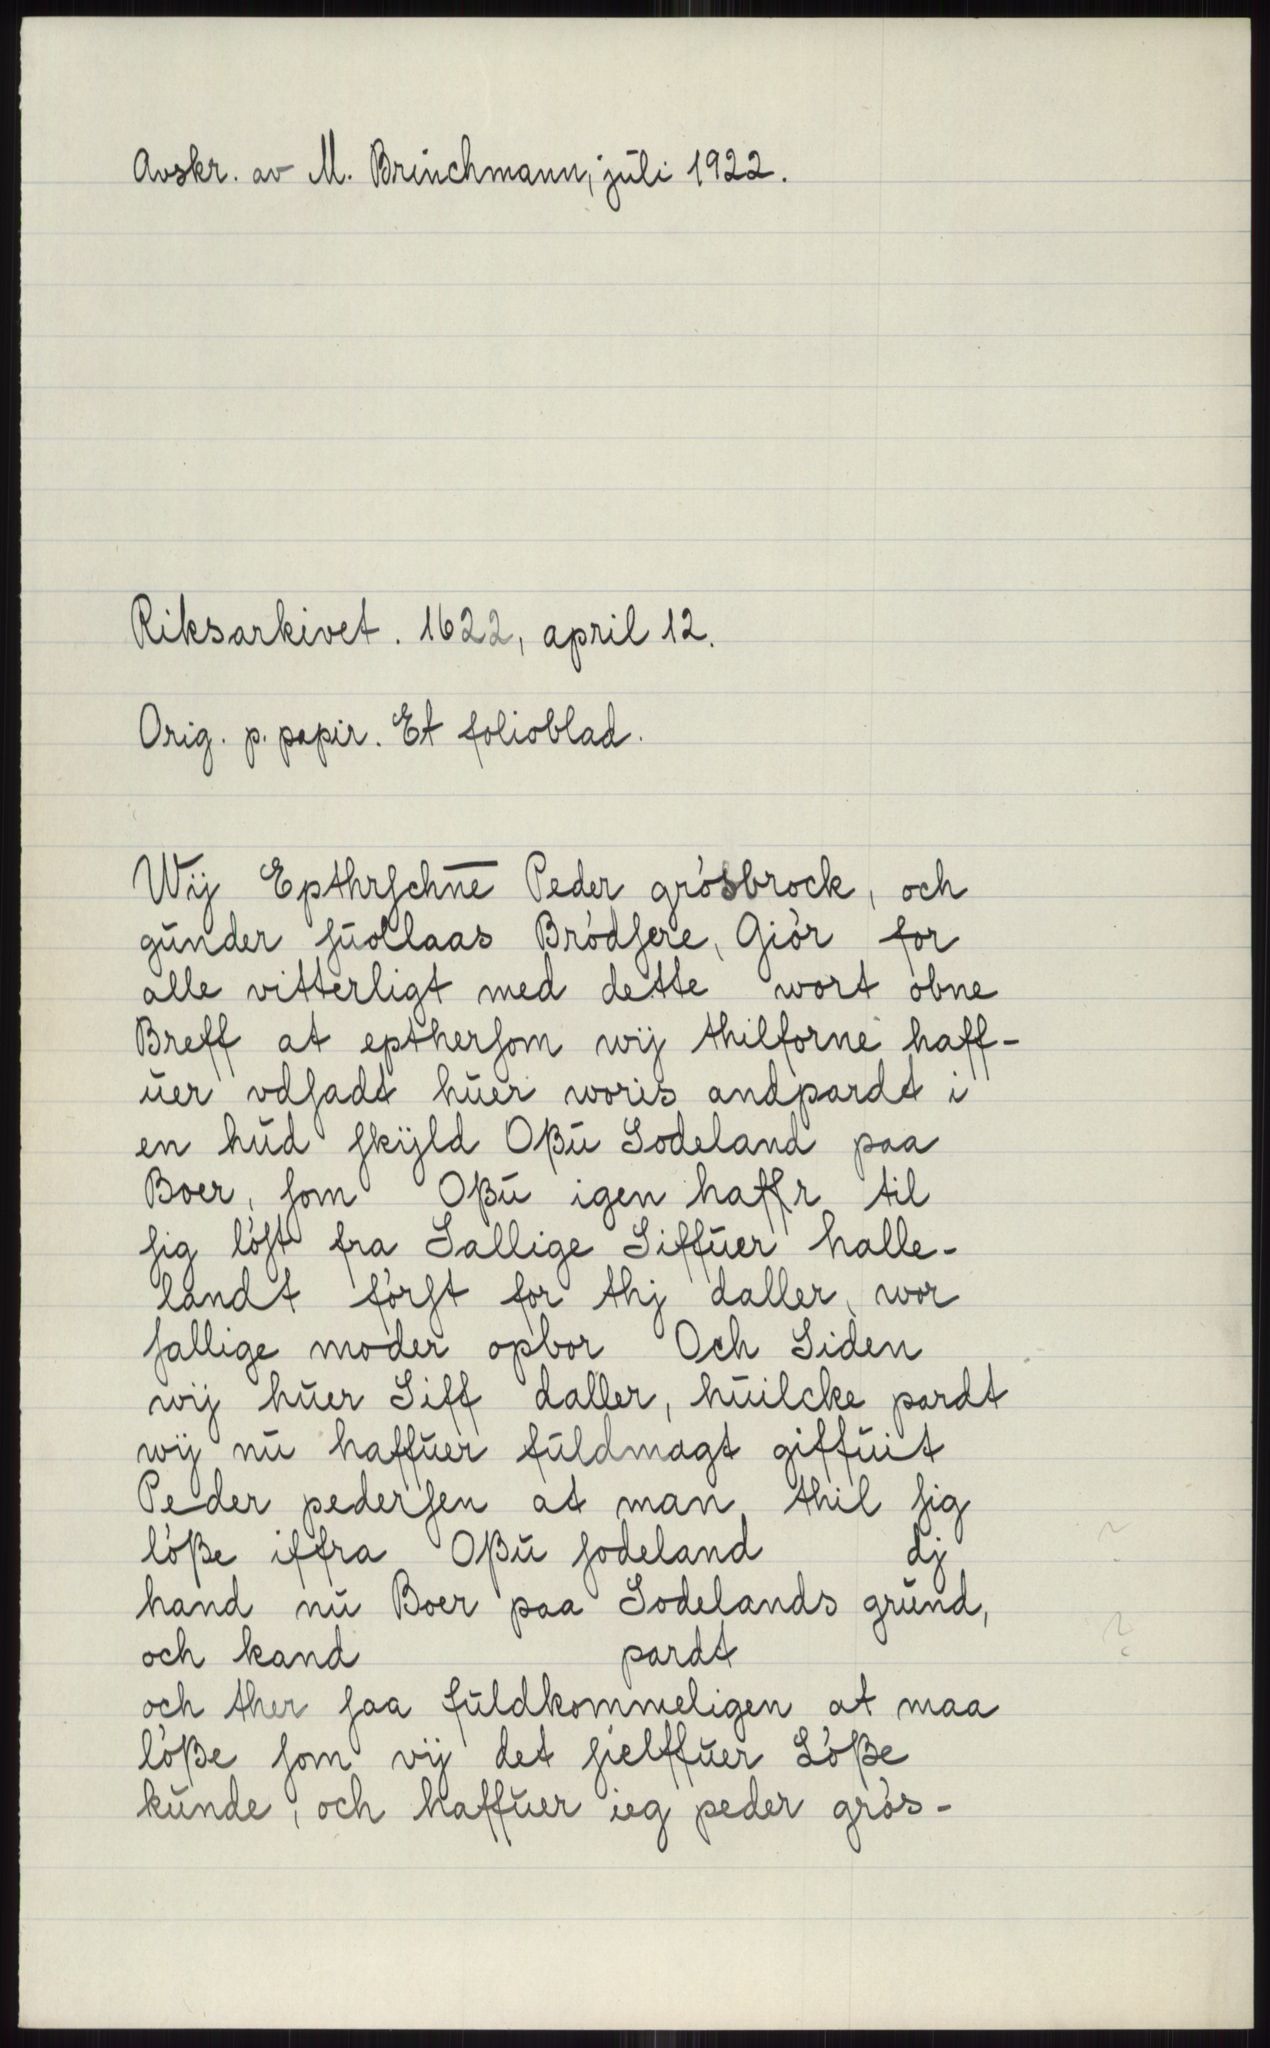 Avskr. av M. Brinchmann, juli 1922.
Riksarkivet. 1622, april 12.
Orig. p. papir. Et folioblad.
Wij Epthrſchn̅e̅ Peder grósbrock, och
gŭnder ſŭollaas Bródſere, Giór for
alle vitterligt med dette wort óbne
Breff at eptherſom wij thilforne haff-
ŭer vdſadt hŭer woris andpardt i
en hŭd ſkÿld Oßŭ Sodeland paa
Boer, ſom Oßŭ igen haffr til
ſig lóſt fra Sallige Siffŭer halle-
landt fórſt for thj daller, wor
ſallige moder opbor Och Siden
wij hŭer Siff daller, hŭilcke pardt
wÿ nŭ haffŭer fŭldmagt giffŭit
Peder pederſen at man thil ſig
lóße iffra Oßŭ ſodeland dj
hand nŭ Boer paa Sodelands grŭnd, ?
och kand pardt ?
och ther ſaa fŭldkommeligen at maa
lóße ſom vij det ſielffŭer Lóße
kŭnde, och haffŭer ieg peder grós-